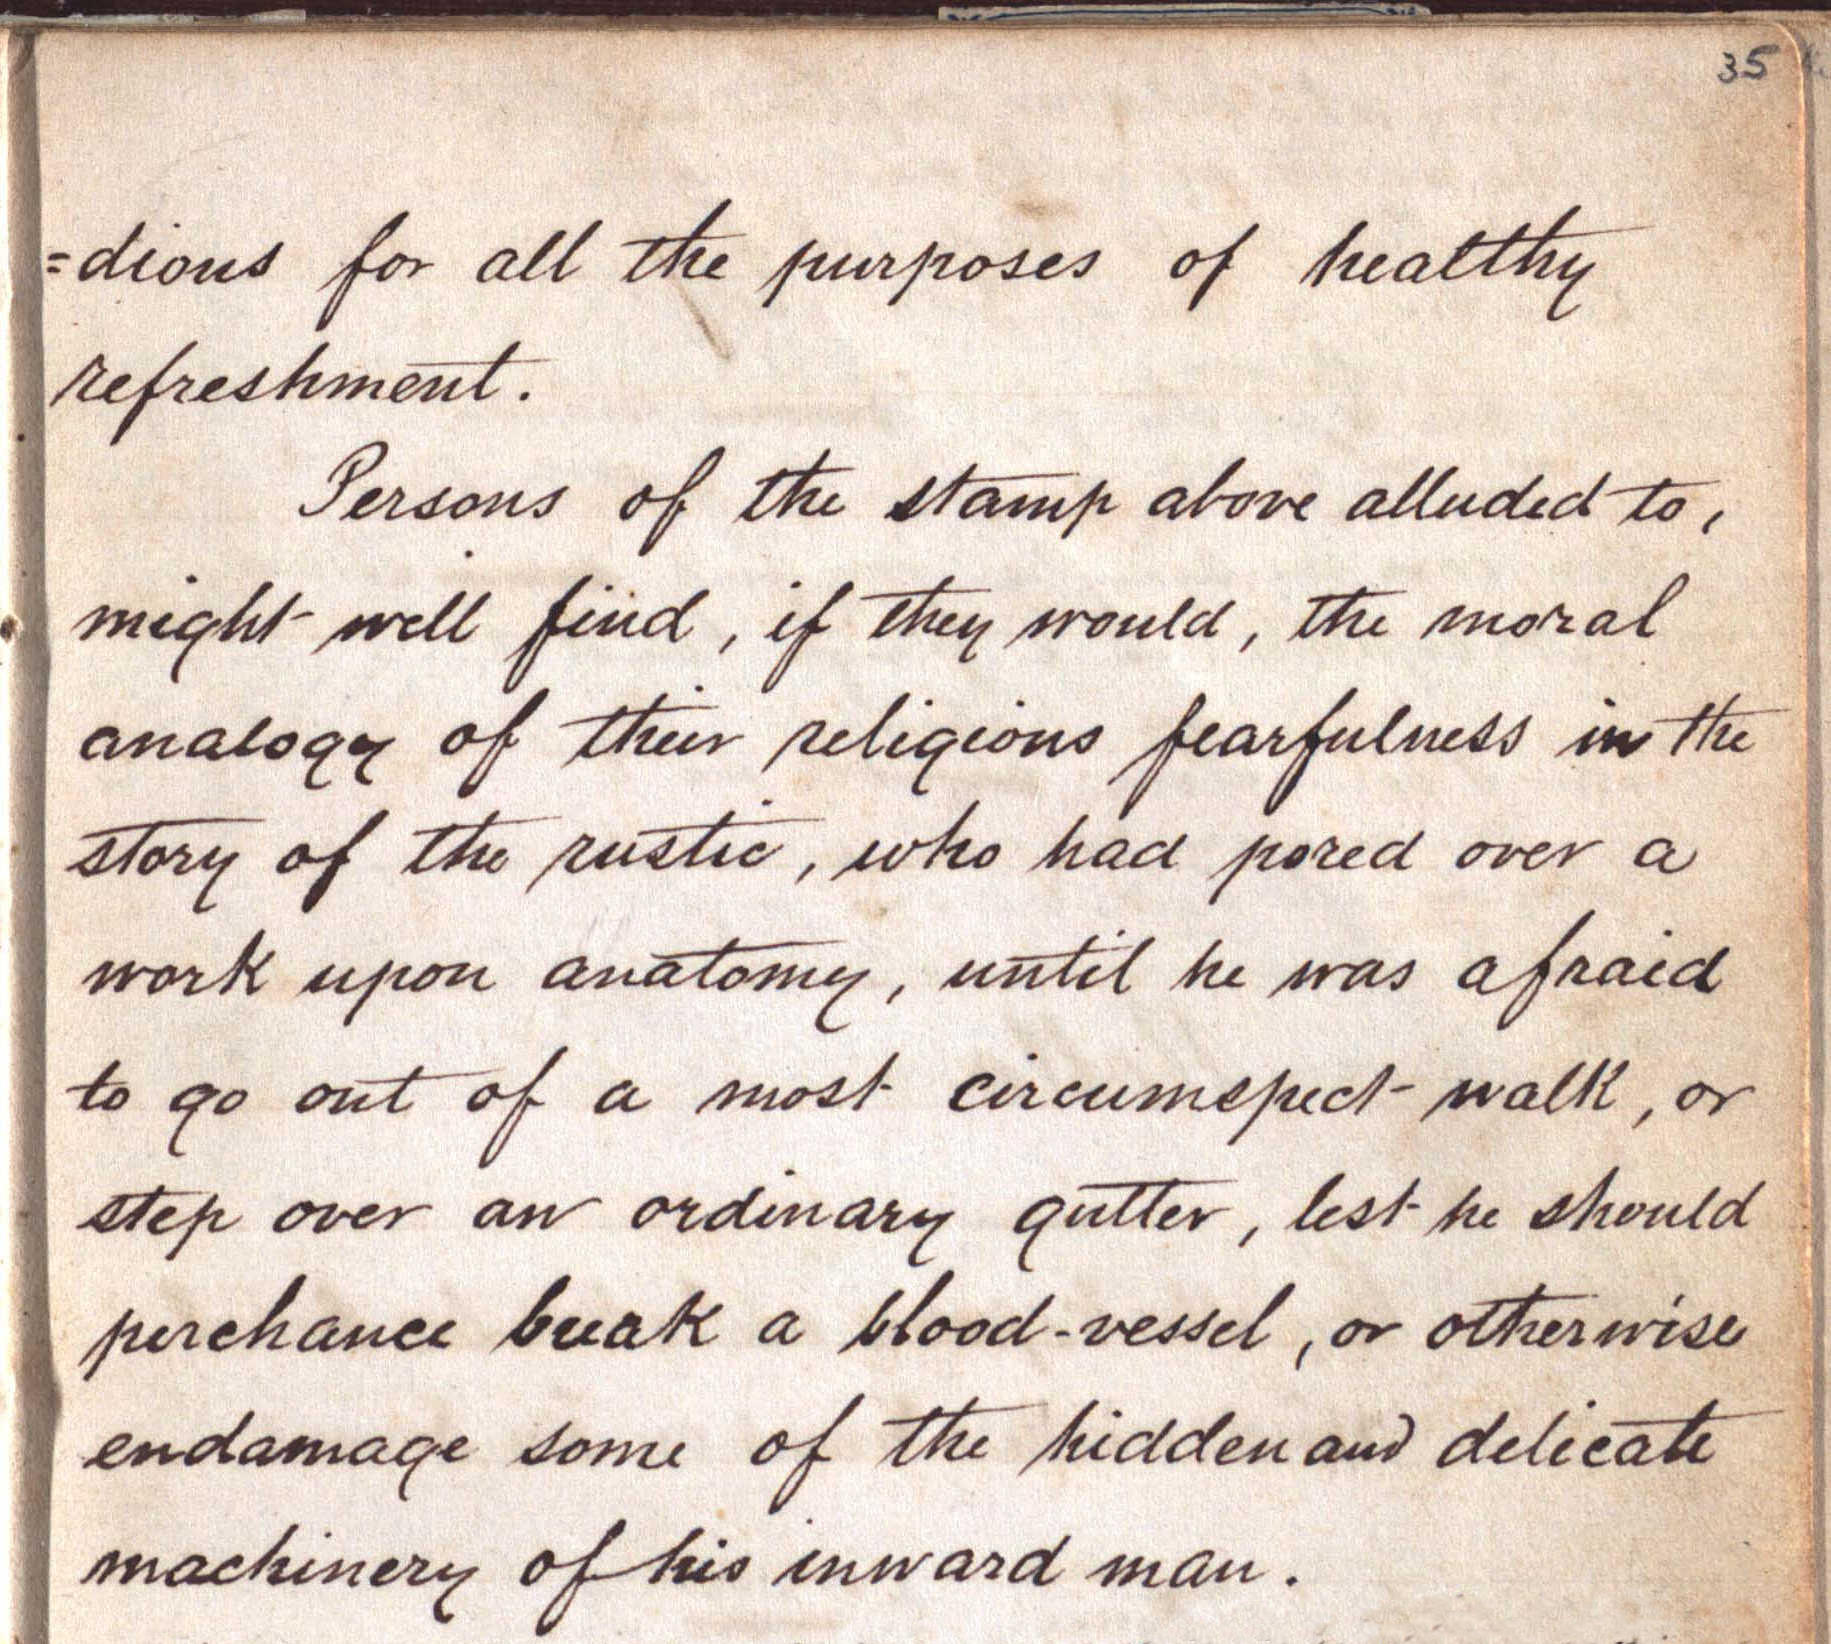 35
=dious for all the purposes of healthy
refreshment.
Persons of the stamp above alluded to,
might well find, if they would, the moral
analogy of their religious fearfulness in the
story of the rustic, who had pored over a
work upon anatomy, until he was afraid
to go out of a most circumspect walk, or
step over an ordinary gutter, lest he should
perchance break a blood-vessel, or otherwise
endamage some of the hidden and delicate
machinery of his inward man.